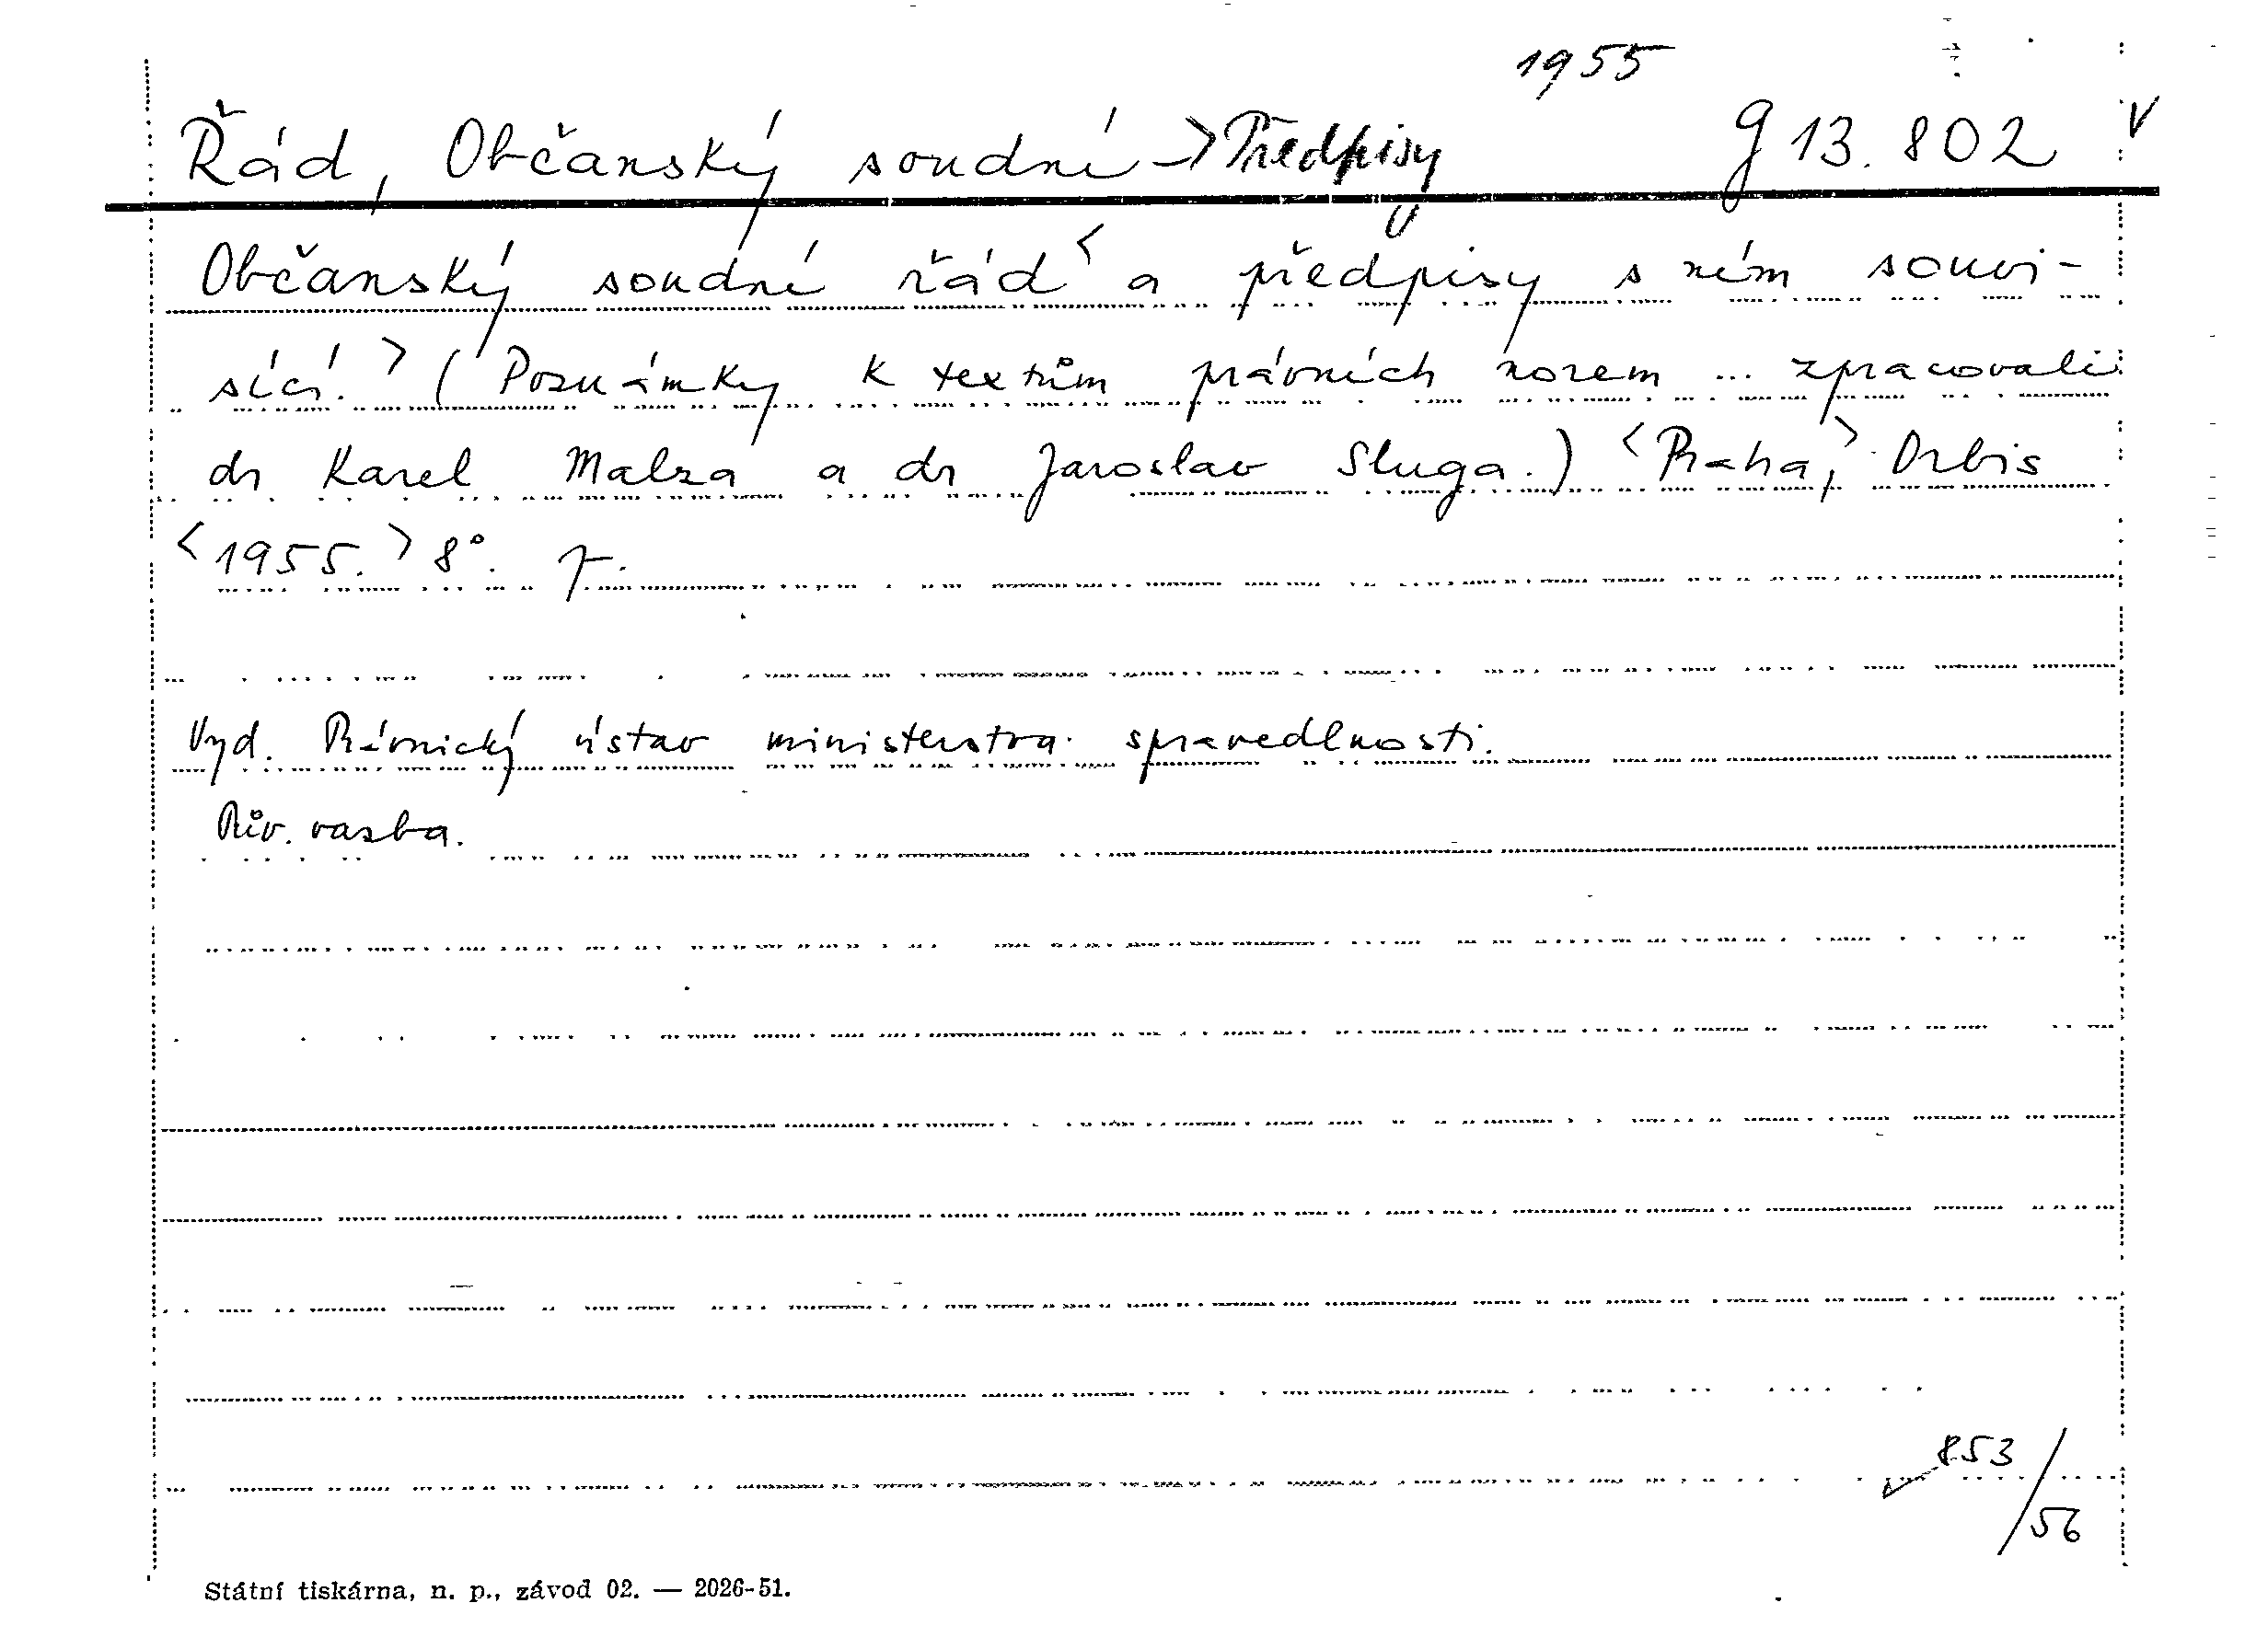 1955
Řád, Občanský soudní → Předpisy g 13.802 v
Občanský soudní řád < a předpisy s ním souvi-
sící. > (Poznámky k textům právních norem ... zpracovali
dr Karel Malza a dr Jaroslav Sluga.) <Praha,> Orbis
<1955.> 8°.
Vyd. Právnický ústav ministerstva spravedlnosti.
Pův. vazba.
853/56
Státní tiskárna, n. p., závod 02. — 2026-51.